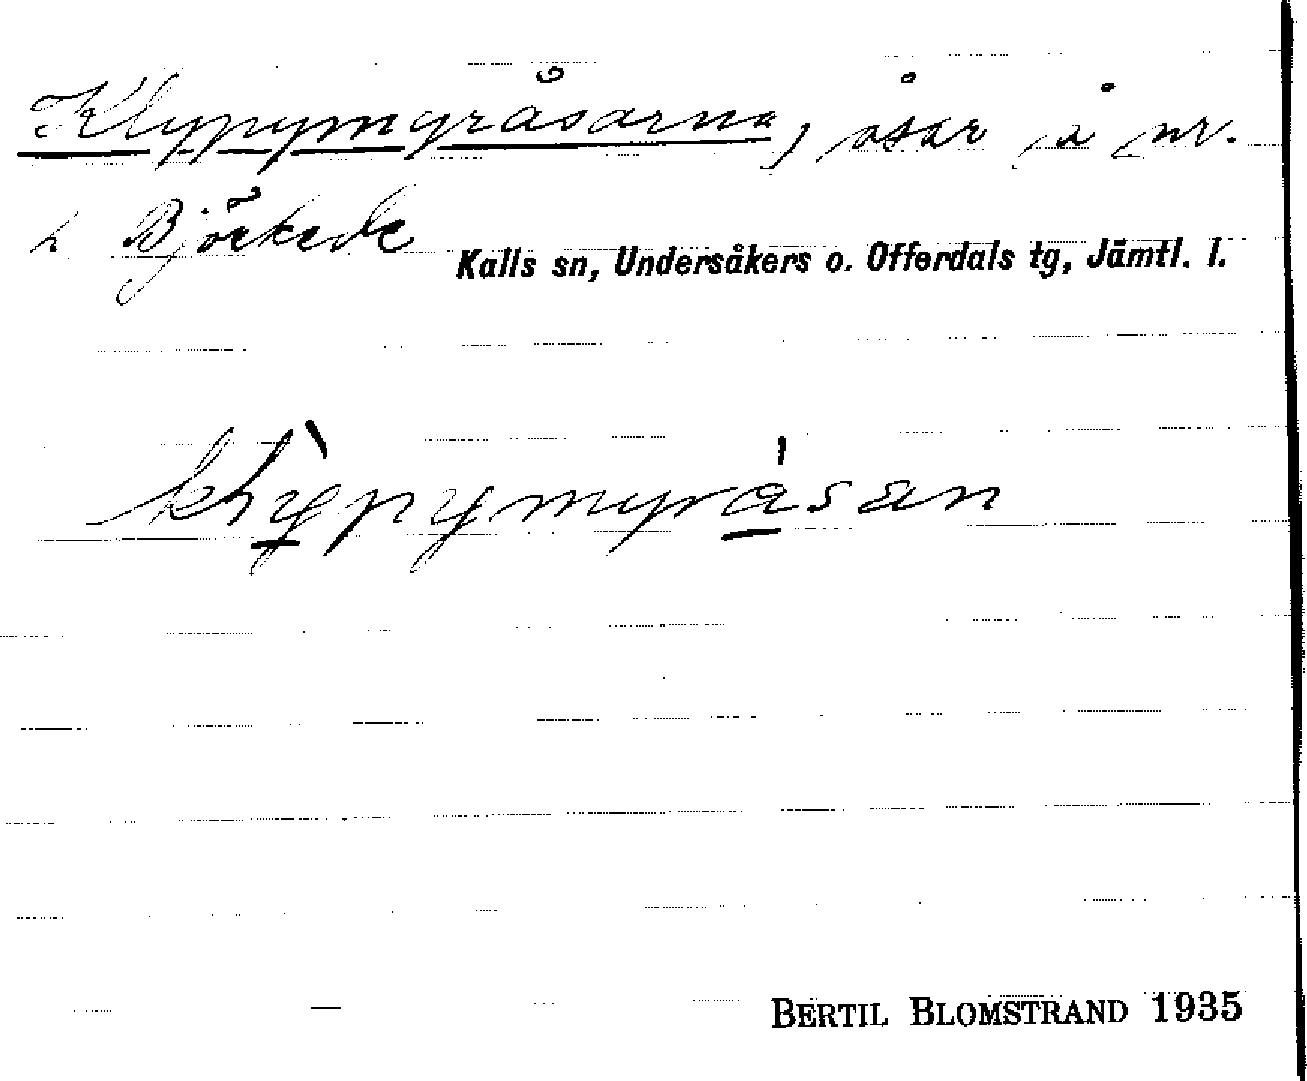 Klypymyråsarna, åsar å nr.
h Björkede Kalls sn, Undersåkers o. Offerdals tg, Jämtl. l.
klỳpymyråsan
BERTIL BLOMSTRAND 1935